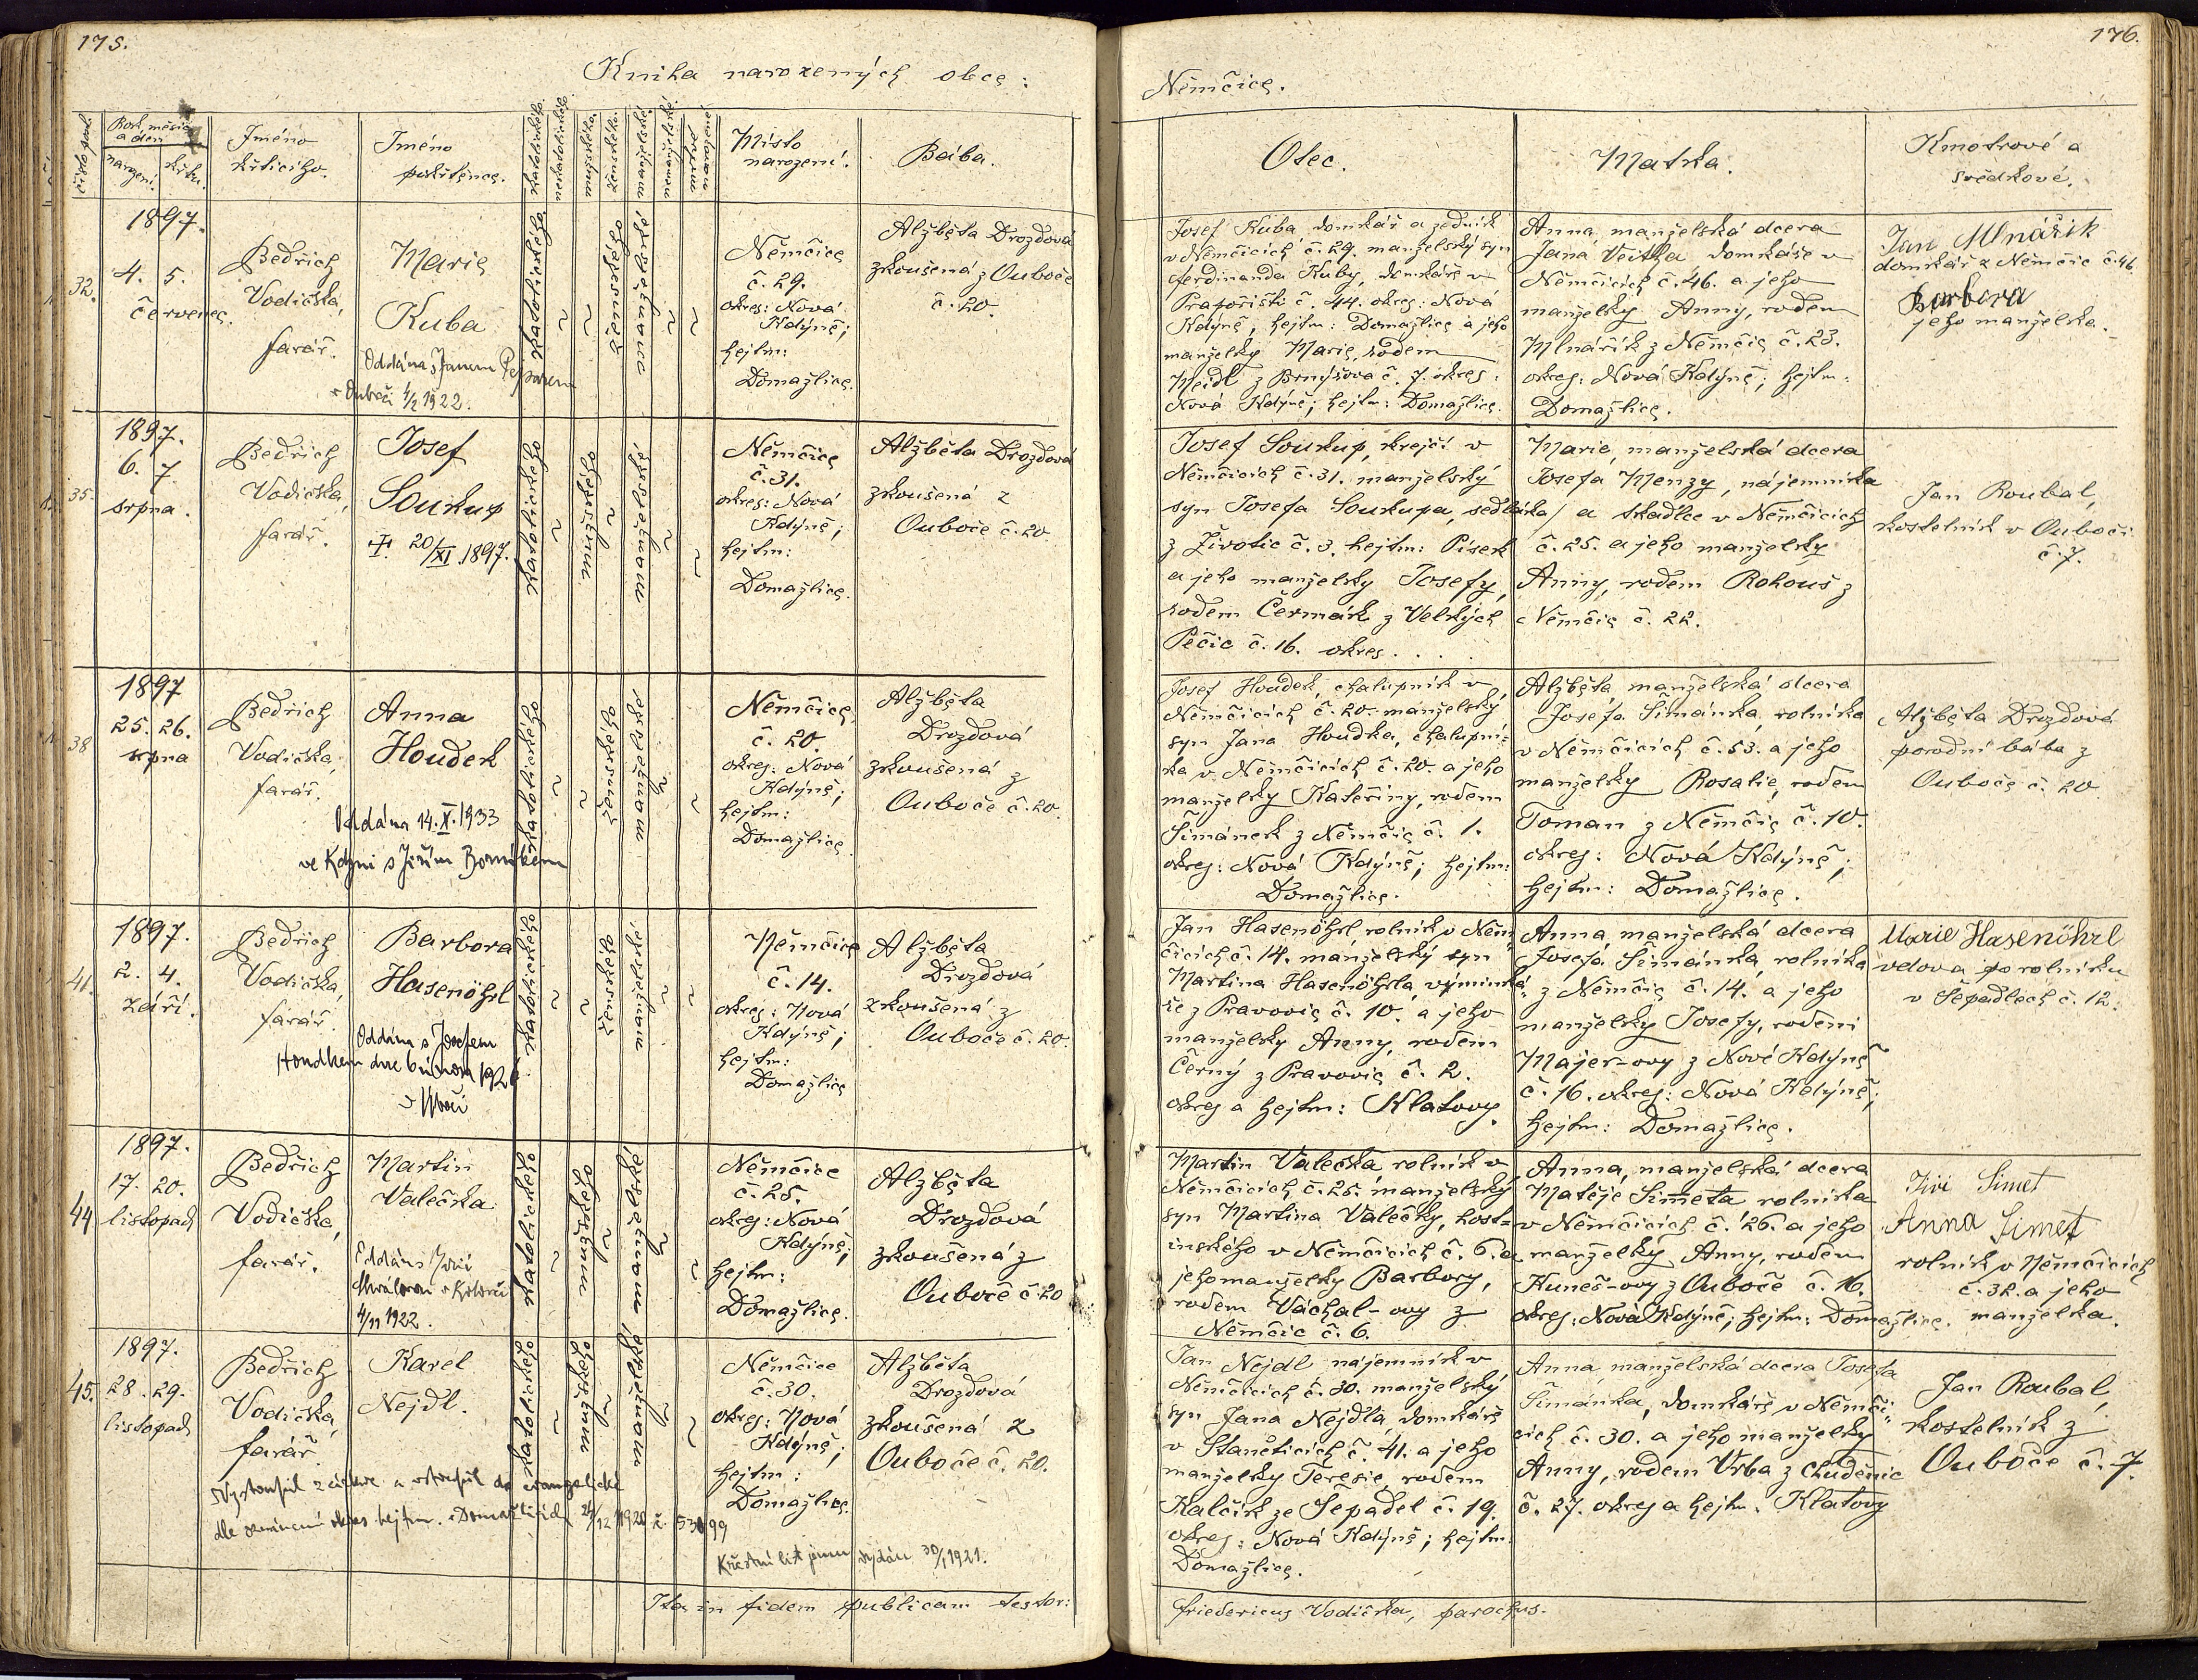 175.
Kniha narozených obce:
číslo poř.
Rok, měsíc
a den
narození.
křtu.
Jméno
křtícího.
Jméno
pokřtěnce.
katolického
nekatolického
mužského
ženského
manželského
nemanželského
Místo
narození.
Bába.
32.
1897.
4. 5.
července.
Bedřich
Vodička,
farář.
Marie
Kuba
Oddána s Janem
v Ouboči 1/2 1922.
katolického
ženského
manželské
Němčice
č. 29.
okres: Nová
Kdýně;
hejtm:
Domažlice.
Alžběta Drozdová
zkoušená z Ouboče
č. 20.
35.
1897.
6. 7.
srpna.
Bedřich
Vodička,
farář.
Josef
Soukup
20/XI 1897.
katolického
mužského
manželské
Němčice
č. 31.
okres: Nová
Kdýně;
hejtm:
Domažlice.
Alžběta Drozdová
zkoušená z
Ouboče č. 20.
38
1897
25. 26.
srpna
Bedřich
Vodička,
farář.
Anna
Houdek
Oddána 14. X. 1933
ve Kdyni s Jiřím
katolického
ženského
manželské
Němčice
č. 20.
okres: Nová
Kdýně;
hejtm:
Domažlice
Alžběta
Drozdová
zkoušená z
Ouboče č. 20.
41.
1897.
2. 4.
září.
Bedřich
Vodička,
farář.
Barbora
Hasenöhrl
Oddána s Josefem
Houdkem dne 6 února
v Úboči
katolického
ženského
manželské
Němčice
č. 14.
okres: Nová
Kdýně;
hejtm:
Domažlice
Alžběta
Drozdová
zkoušená z
Ouboče č. 20.
44
1897.
17. 20.
listopad
Bedřich
Vodička,
farář.
Martin
Valečka
4/11 1922.
katolického
mužského
manželské
Němčice
č. 25.
okres: Nová
Kdýně;
hejtm:
Domažlice.
Alžběta
Drozdová
zkoušená z
Ouboče č. 20
45.
1897.
28. 29.
listopad
Bedřich
Vodička,
farář.
Karel
Nejdl.
Vystoupil z církve a vstoupil do evangelické
dle oznámení okres. hejtm. v Domažlicích 24/12 1920 č. 53099
Křestní list jemu vydán 30/1 1921.
katolického
mužského
manželské
Němčice
č. 30.
okres: Nová
Kdýně;
hejtm:
Domažlice.
Alžběta
Drozdová
zkoušená z
Ouboče č. 20.
Ita in fidem publicam testor:
176.
Němčice.
Otec.
Matka.
Kmotrové a
svědkové.
Josef Kuba domkář a zedník
v Němčicích č. 29. manželský syn
Ferdinanda Kuby, domkáře v
Prapořišti č. 44. okres: Nová
Kdýně, hejtm: Domažlice a jeho
manželky Marie, rodem
Neidl z Brnyšova č. 7. okres:
Nová Kdýně; hejtm: Domažlice.
Anna, manželská dcera
Jana Veitha domkáře v
Němčicích č. 46. a jeho
manželky Anny, rodem
Mlnařík z Němčic č. 23.
okres: Nová Kdýně; hejtm:
Domažlice.
Jan Mlnářik
domkář z Němčic č. 46.
Barbora
jeho manželka.
Josef Soukup, krejčí v
Němčicích č. 31. manželský
syn Josefa Soukupa, sedláka
z Životic č. 3. hejtm: Písek
a jeho manželky Josefy,
rodem Čermák z Velkých
Pečic č. 16. okres. . . .
Marie, manželská dcera
Josefa Menzy, nájemníka
a tkadlce v Němčicích
č. 25. a jeho manželky
Anny, rodem Rohouš z
Němčic č. 22.
Jan Roubal,
kostelník v Ouboči
č. 7.
Josef Houdek, chalupník v
Němčicích č. 20. manželský
syn Jana Houdka, chalupní-
ka v Němčicích č. 20. a jeho
manželky Kateřiny, rodem
Šimánek z Němčic č. 1.
okres: Nová Kdýně; hejtm:
Domažlice.
Alžběta, manželská dcera
Josefa Šimánka, rolníka
v Němčicích č. 53. a jeho
manželky Rosalie, rodem
Toman z Němčic č. 10.
okres: Nová Kdýně;
hejtm: Domažlice.
Alžběta Drozdová
porodní bába z
Ouboče č. 20
Jan Hasenöhrl rolník v Něm-
čicích č. 14. manželský syn
Martina Hasenöhrla, výminká-
ře z Pravovic č. 10. a jeho
manželky Anny, rodem
Černý z Pravovic č. 2.
okres a hejtm: Klatovy.
Anna manželská dcera
Josefa Šimánka, rolníka
z Němčic č. 14. a jeho
manželky Josefy, rodem
Majer-ovy z Nové Kdýně
č. 16. okres: Nová Kdýně;
hejtm: Domažlice.
Marie Hasenöhrl
vdova po rolníku
v Šepadlech č. 12.
Martin Valečka rolník v
Němčicích č. 25. manželský
syn Martina Valečky, host-
inského v Němčicích č. 6. a
jeho manželky Barbory,
rodem Váchal-ovy z
Němčic č. 6.
Anna, manželská dcera
Matěje Šimeta rolníka
v Němčicích č. 26. a jeho
manželky Anny, rodem
Kuneš-ovy z Ouboče č. 16.
okres: Nová Kdýně; hejtm: Domažlice.
Jiří Simet
Anna Simet
rolník v Němčicích
č. 32. a jeho
manželka.
Jan Nejdl nájemník v
Němčicích č. 30. manželský
syn Jana Nejdla, domkáře
v Staněticích č. 41. a jeho
manželky Terésie, rodem
Kalčík ze Šepadel č. 19.
okres: Nová Kdýně; hejtm:
Domažlice.
Anna, manželská dcera Josefa
Šimánka, domkáře v Němči-
cích č. 30. a jeho manželky
Anny, rodem Vrba z Chuděnic
č. 27. okres a hejtm. Klatovy
Jan Roubal,
kostelník z
Ouboče č. 7.
Friedericus Vodička, parochus.